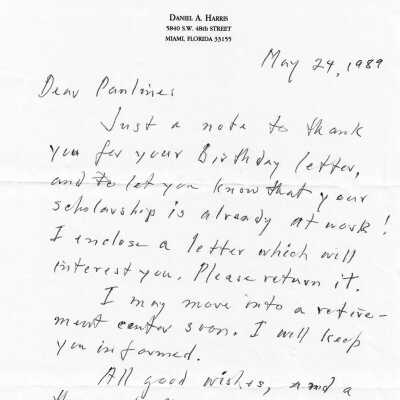 Daniel A. Harris
5840 S.W. 48th Street
Miami, Florida 33155
May 24, 1989
Dear Paulines
Just a note to thank
you for your Birthday letter,
and to let you know that your
scholarship is already at work!
I enclose a letter which will
interest you. Please return it.
I may move into a retire-
ment center soon. I will keep
you informed.
All good wishes, and a